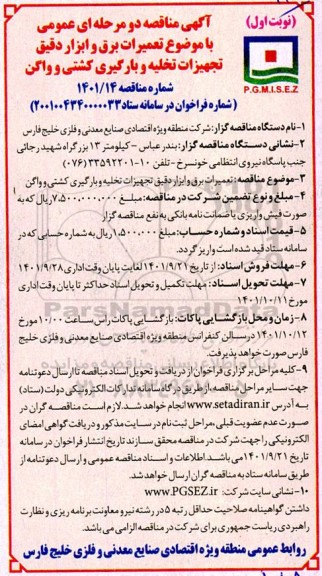 (نوبت اول)
آگهی مناقصه دو مرحله ای عمومی
با موضوع تعمیرات برق و ابزار دقیق
تجهیزات تخلیه و بارگیری کشتی و واگن
شماره مناقصه ۱۴۰۱/۱۴
(شماره فراخوان در سامانه ستاد ۲۰۰۱۰۰۴۳۴۰۰۰۰۳۳)
P.G.M.I.S.E.Z
۱-نام دستگاه مناقصه گزار: شرکت منطقه ویژه اقتصادی صنایع معدنی و فلزی خلیج فارس
۲-نشانی دستگاه مناقصه گزار: بندرعباس - کیلومتر ۱۳ بزرگراه شهید رجائی
جنب پاسگاه نیروی انتظامی خونسرخ - تلفن ۱۰-۳۳۵۹۲۲۰۱ (۰۷۶)
۳-موضوع مناقصه: تعمیرات برق و ابزار دقیق تجهیزات تخلیه و بارگیری کشتی و واگن
۴-مبلغ و نوع تضمین شرکت در مناقصه: مبلغ ۷،۵۰۰،۰۰۰،۰۰۰ ریال که به
صورت فیش واریزی یا ضمانت نامه بانکی به نفع مناقصه گزار
۵-قیمت اسناد و شماره حساب: مبلغ ۱،۵۰۰،۰۰۰ ریال به شماره حسابی که در
سامانه ستاد قید شده است واریز گردد.
۶-مهلت فروش اسناد: از تاریخ ۱۴۰۱/۹/۲۱ لغایت پایان وقت اداری ۱۴۰۱/۹/۲۸
۷-مهلت تحویل اسناد: مهلت تکمیل و تحویل اسناد حداکثر تا پایان وقت اداری
مورخ ۱۴۰۱/۱۰/۱۱
۸-زمان و محل بازگشایی پاکات: بازگشایی پاکات راس ساعت ۱۰:۰۰ مورخ
۱۴۰۱/۱۰/۱۲ در سالن کنفرانس منطقه ویژه اقتصادی صنایع معدنی و فلزی خلیج
فارس صورت خواهد پذیرفت.
۹-کلیه مراحل برگزاری فراخوان از دریافت و تحویل اسناد مناقصه تا ارسال دعوتنامه
جهت سایر مراحل مناقصه از طریق درگاه سامانه تدارکات الکترونیکی دولت (ستاد)
به آدرس www.setadiran.ir انجام خواهد شد. لازم است مناقصه گران در
صورت عدم عضویت قبلی، مراحل ثبت نام در سایت مذکور و دریافت گواهی امضای
الکترونیکی را جهت شرکت در مناقصه محقق سازند تاریخ انتشار فراخوان در سامانه
تاریخ ۱۴۰۱/۹/۲۱ می باشد. اطلاعات و اسناد مناقصه عمومی و ارسال دعوتنامه از
طریق سامانه ستاد به مناقصه گران ارسال خواهد شد.
۱۰-نشانی سایت شرکت: www.PGSEZ.ir
داشتن گواهینامه صلاحیت حداقل رتبه ۵ در رشته نیرو معاونت برنامه ریزی و نظارت
راهبردی ریاست جمهوری برای شرکت در مناقصه الزامی می باشد.
روابط عمومی منطقه ویژه اقتصادی صنایع معدنی و فلزی خلیج فارس